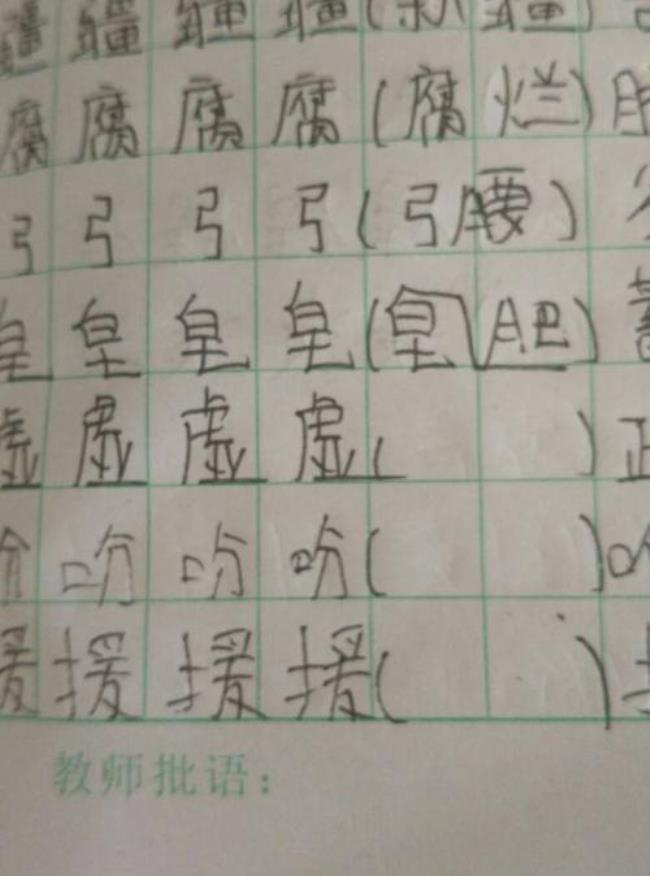 疆 疆 疆 疆 (新 疆)
腐 腐 腐 腐 (腐 烂)
弓 弓 弓 弓 (弓 腰)
皇 皇 皇 皇 (皇 肥)
虚 虚 虚 虚 ( )
吩 吩 吩 吩 ( )
援 援 援 援 ( )
教师批语：